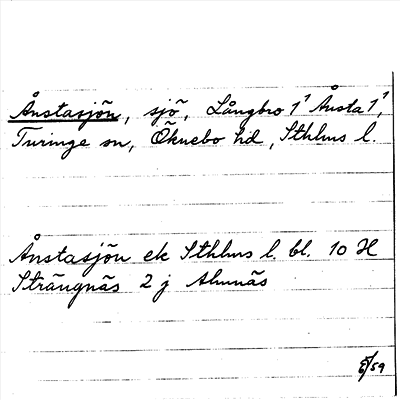 Ånstasjön, sjö, Långbro 1¹ Ånsta 1¹,
Turinge sn, Öknebo hd, Sthlms l.
Ånstasjön ek Sthlms l. bl. 10 H
Strängnäs 2 j Almnäs
/59